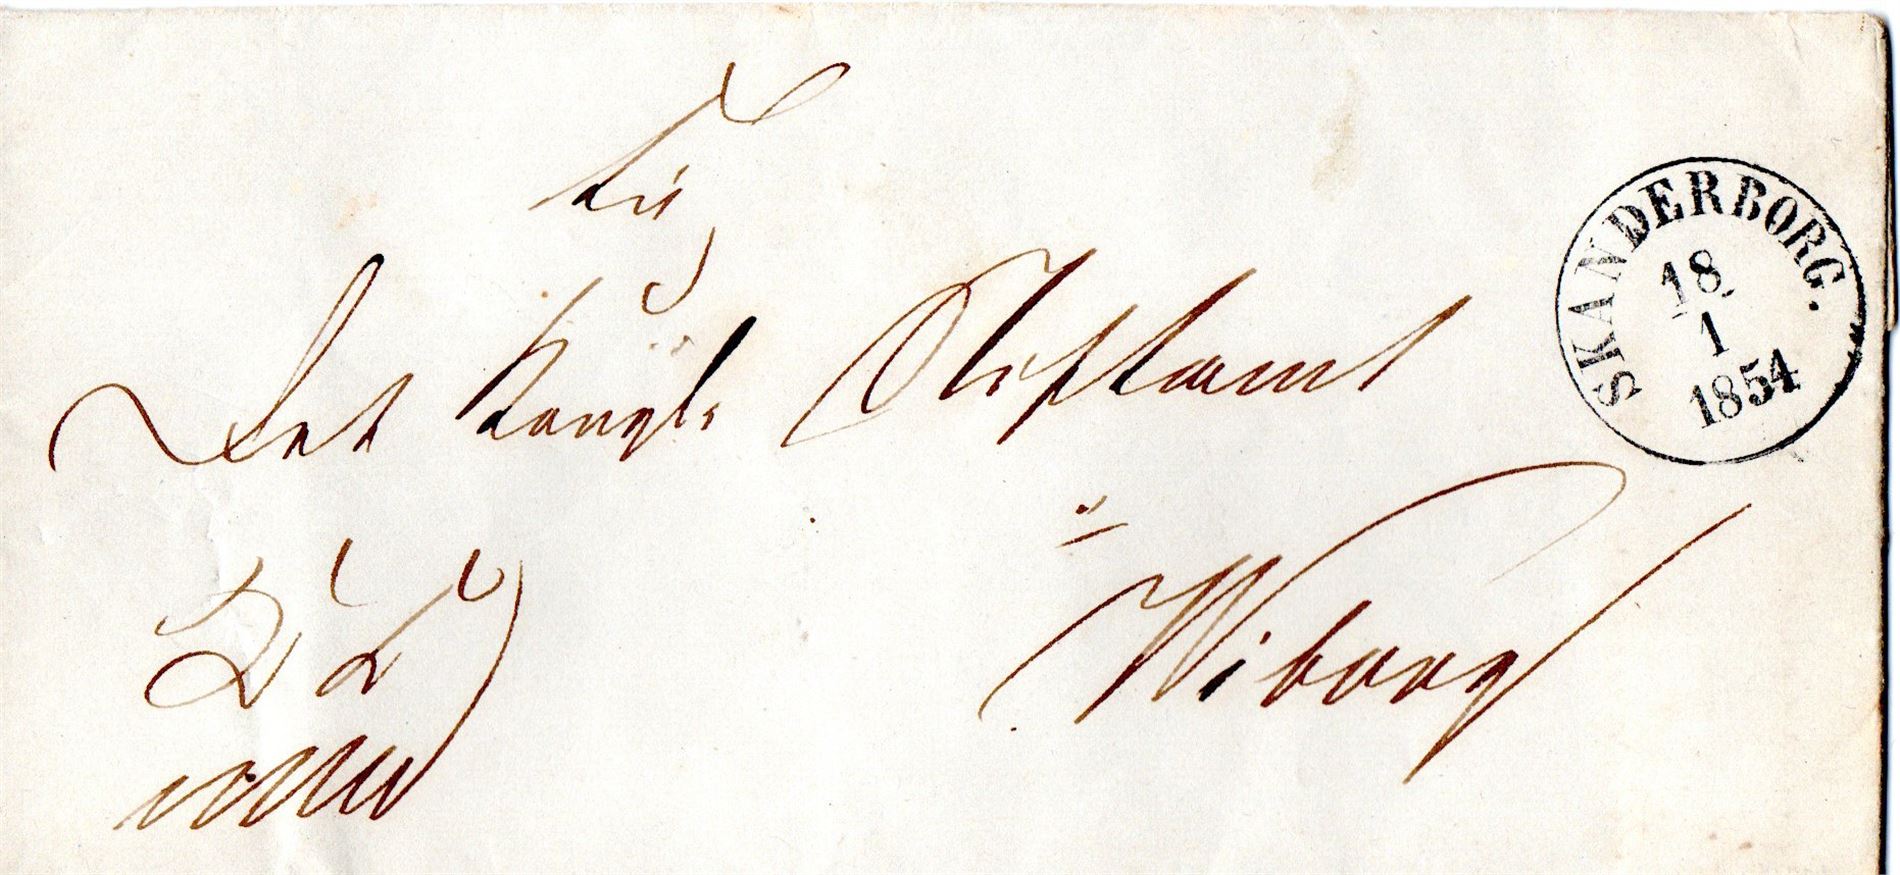 Til
Det Kongl. Stiftamt
i
Wiborg
SKANDERBORG.
18
1
1854